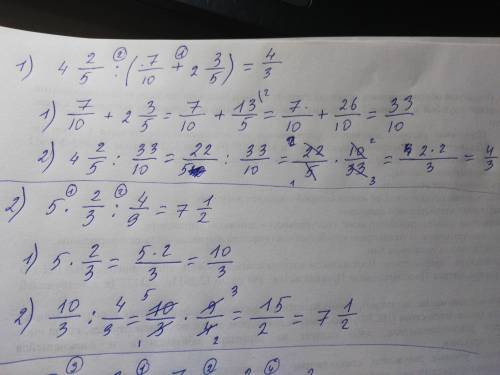 1) 4 2/5 :② (7/10 +① 2 3/5) = 4/3
1) 7/10 + 2 3/5 = 7/10 + 13/5 |2 = 7/10 + 26/10 = 33/10
2) 4 2/5 : 33/10 = 22/5 : 33/10 = 22/5 · 10/33 = 2·2/3 = 4/3
2) 5 ·① 2/3 :② 4/9 = 7 1/2
1) 5 · 2/3 = 5·2/3 = 10/3
2) 10/3 : 4/9 = 10/3 · 9/4 = 15/2 = 7 1/2